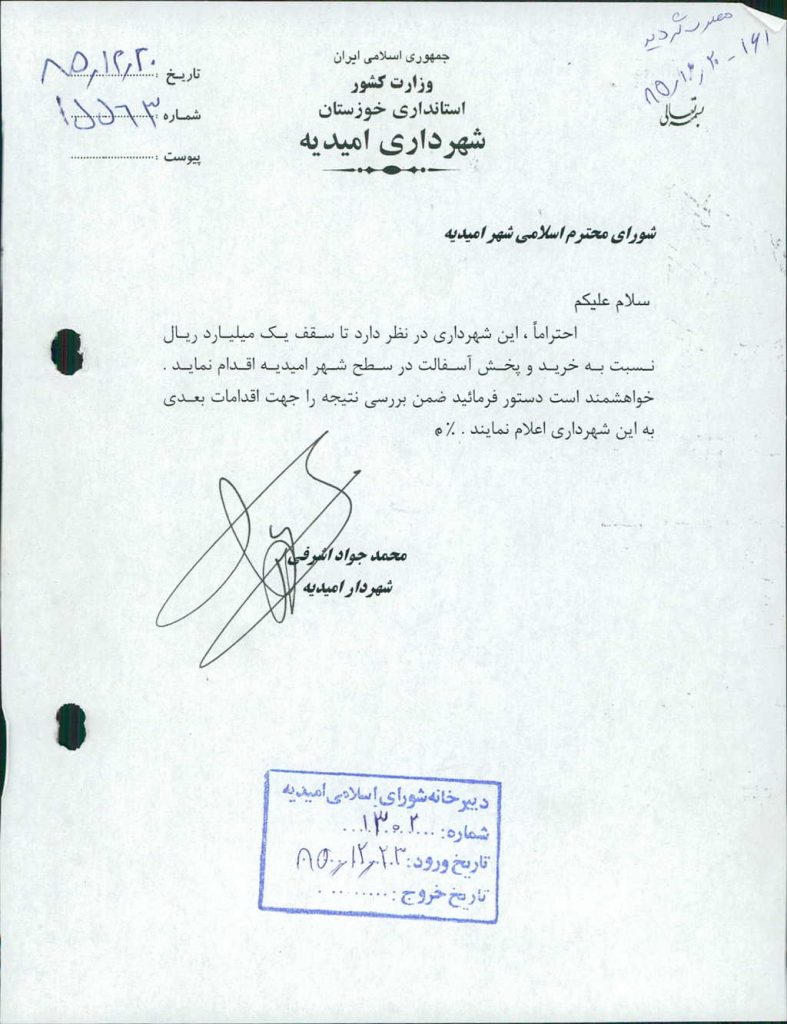 جمهوری اسلامی ایران
وزارت کشور
استانداری خوزستان
شهرداری امیدیه
بسمه تعالی
تاریخ : ۸۵٫۱۲٫۲۰
شماره : ۱۵۵۶۳
پیوست :
شورای محترم اسلامی شهر امیدیه
سلام علیکم
احتراماً ، این شهرداری در نظر دارد تا سقف یک میلیارد ریال
نسبت به خرید و پخش آسفالت در سطح شهر امیدیه اقدام نماید .
خواهشمند است دستور فرمائید ضمن بررسی نتیجه را جهت اقدامات بعدی
به این شهرداری اعلام نمایند .
محمد جواد اشرفی
شهردار امیدیه
دبیرخانه شورای اسلامی امیدیه
شماره: ۱۳۰۲
تاریخ ورود: ۸۵٫۱۲٫۲۳
تاریخ خروج :